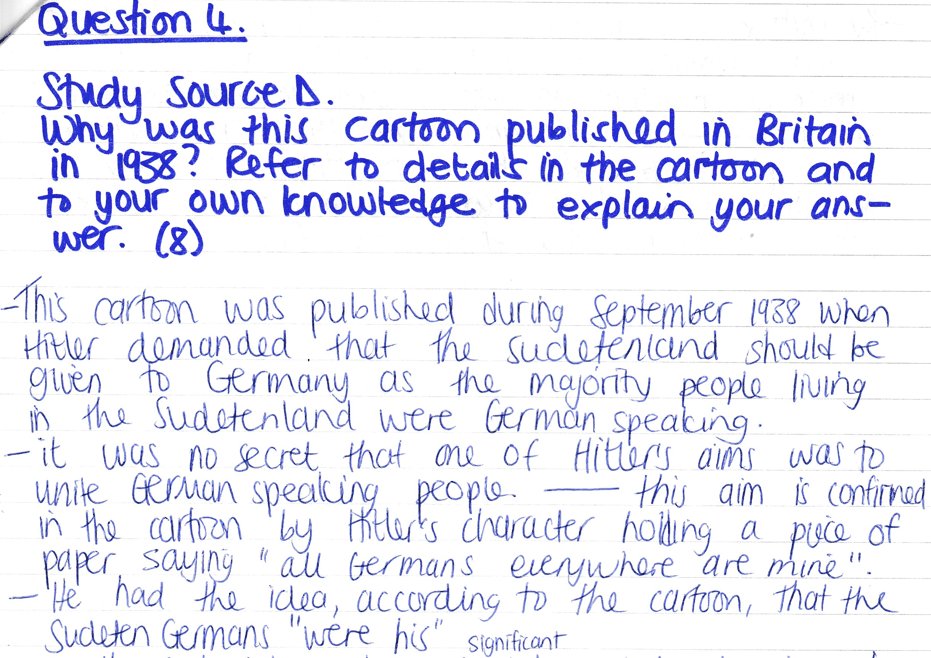 Question 4.
Study Source D.
Why was this cartoon published in Britain
in 1938? Refer to details in the cartoon and
to your own knowledge to explain your ans-
wer. (8)
- This cartoon was published during September 1938 when
Hitler demanded that the sudetenland should be
given to Germany as the majority people living
in the Sudetenland were German speaking.
- it was no secret that one of Hitler's aims was to
unite German speaking people. —— this aim is confirmed
in the cartoon by Hitler's character holding a piece of
paper saying "all Germans everywhere are mine".
- He had the idea, according to the cartoon, that the
Sudeten Germans "were his" significant